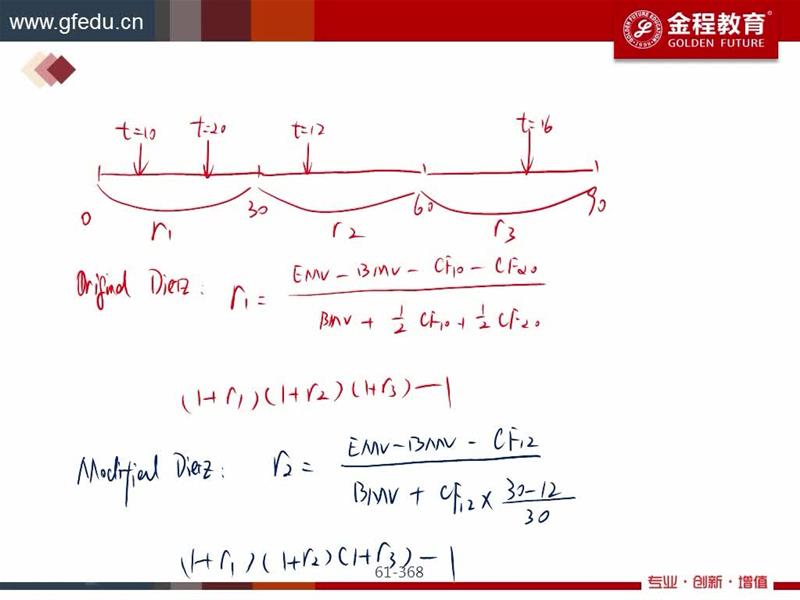 www.gfedu.cn
金程教育
GOLDEN FUTURE
t=10 t=20 t=12 t=16
0 30 60 90
r1 r2 r3
Original Dietz: r1 = (EMV - BMV - CF10 - CF20) / (BMV + 1/2 CF10 + 1/2 CF20)
(1+r1)(1+r2)(1+r3)-1
Modified Dietz: r2 = (EMV - BMV - CF12) / (BMV + CF12 × (30-12)/30)
(1+r1)(1+r2)(1+r3)-1
61-368
专业·创新·增值